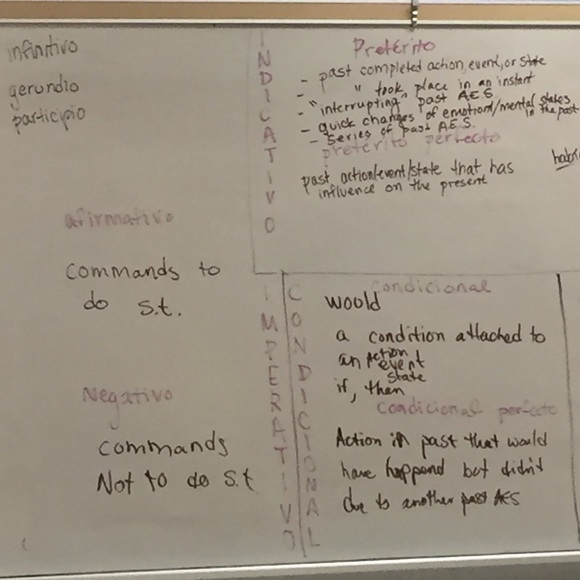 infinitivo
gerundio
participio
INDICATIVO
Pretérito
- past completed action, event, or state
- " " took place in an instant
- "interrupting" past AES
- quick changes of emotion/mental states in the past
- Series of past A.E.S.
pretérito perfecto
past action/event/state that has
influence on the present
afirmativo
Commands to
do s.t.
Negativo
Commands
Not to do s.t
IMPERATIVO
CONDICIONAL
Condicional
would
a condition attached to
an Action
event
State
if, then
Condicional perfecto
Action in past that would
have happend but didn't
due to another past AES